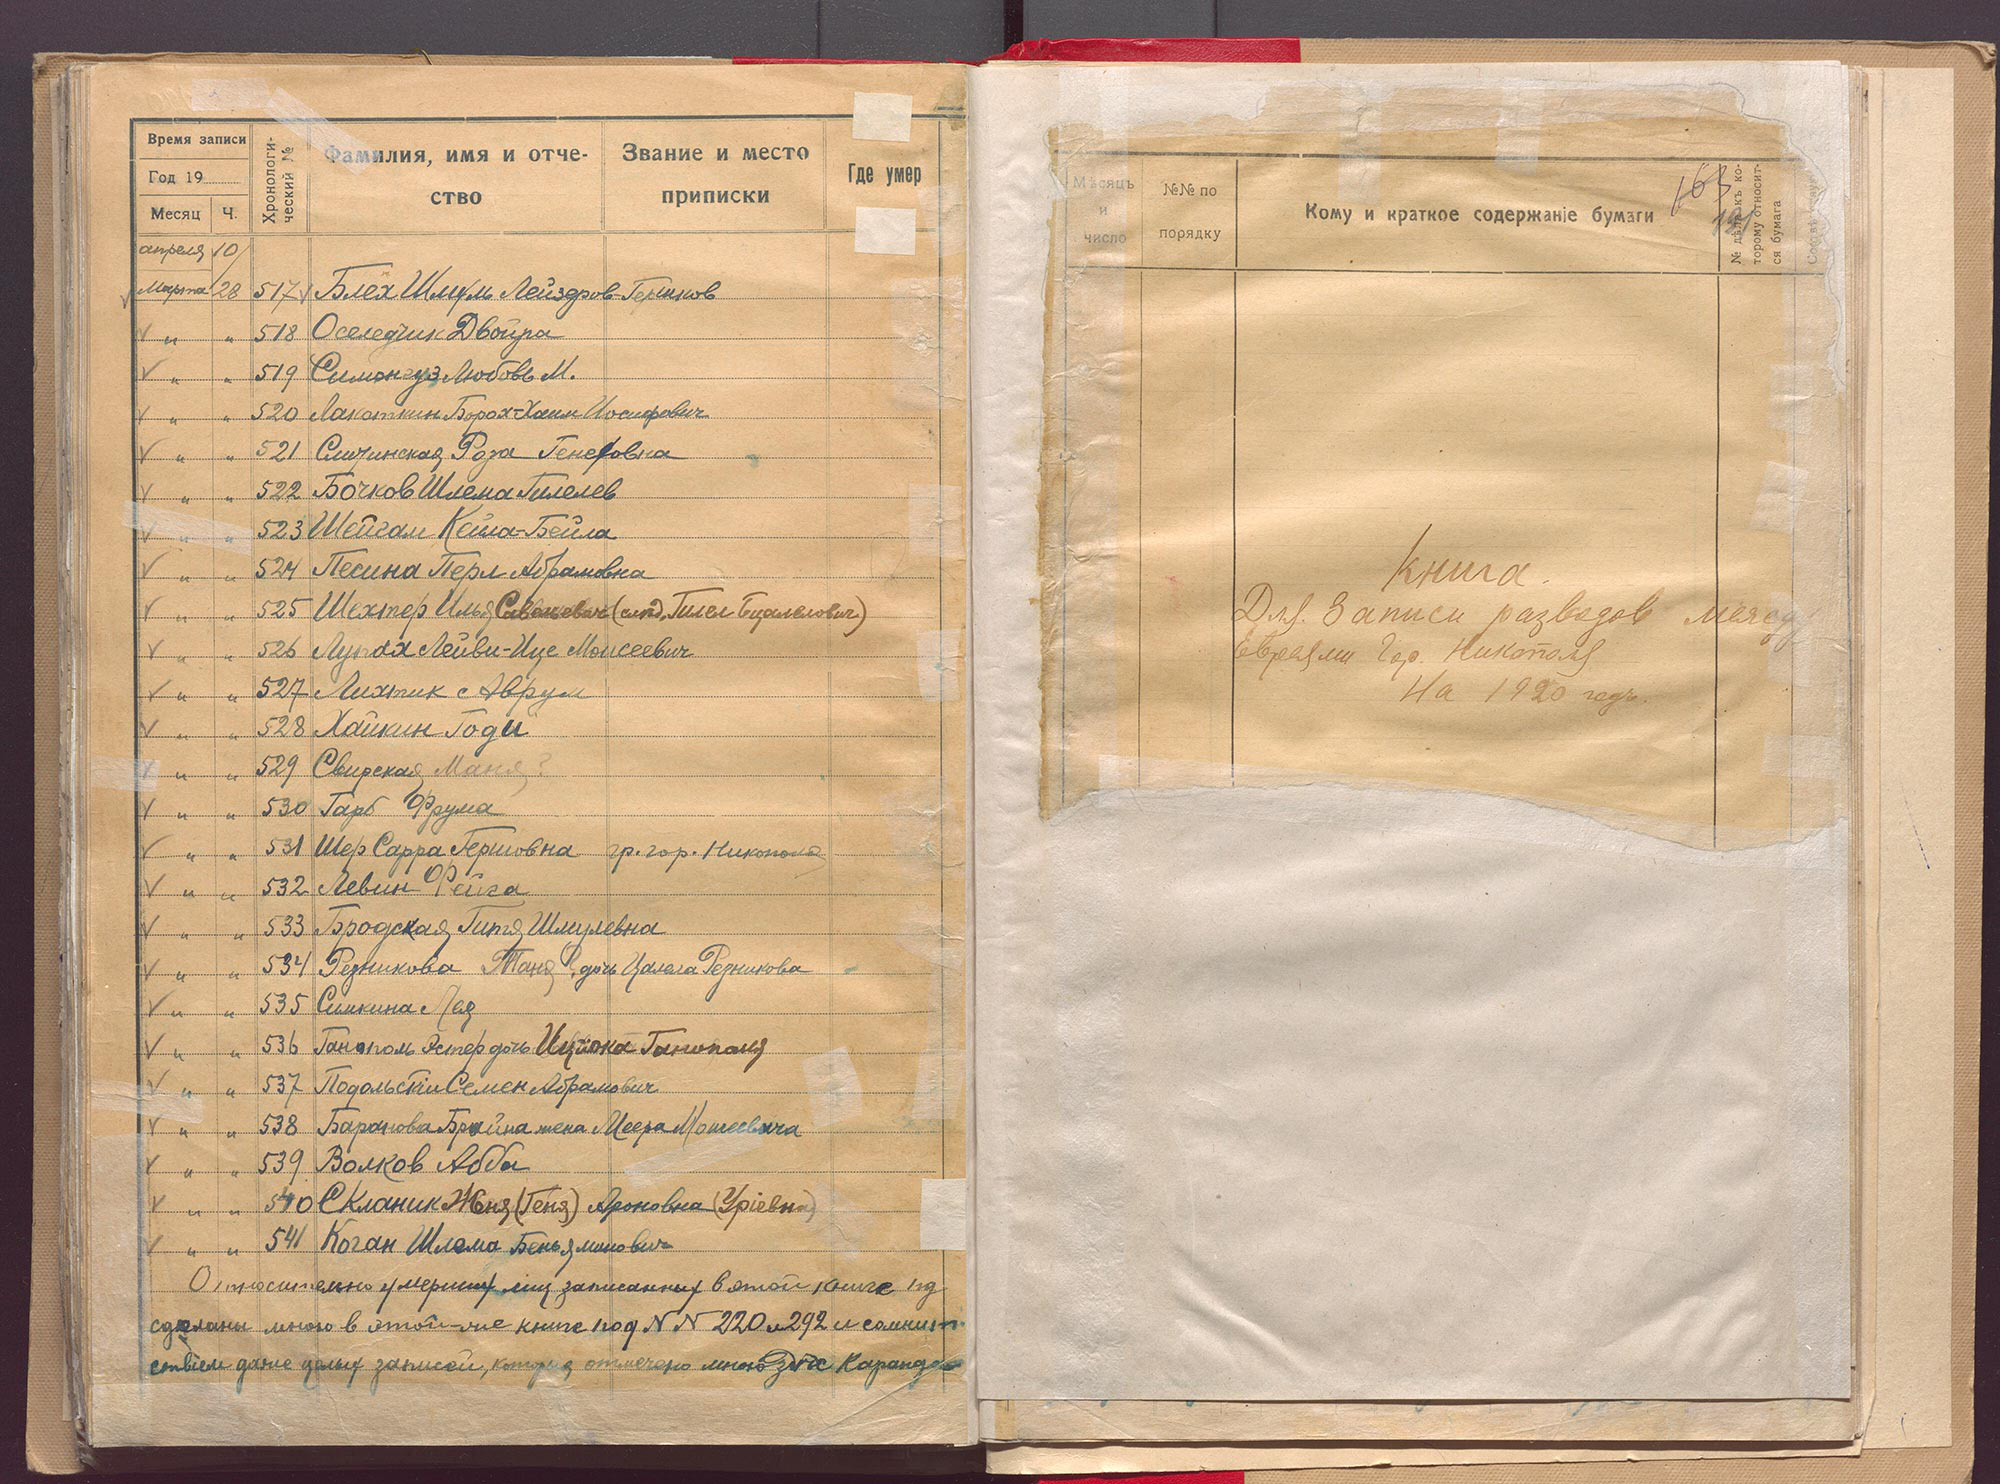 Время записи
Год 19
Месяц Ч.
Хронологический №
Фамилия, имя и отчество
Звание и место приписки
Где умер
апреля 10/
Марта 28 517 Блех Шмуль Лейзеров-Гершков
" " 518 Оселедчик Двойра
" " 519 Симонгуз Любовь М.
" " 520 Лакоткин Борох-Хаим Иосифович
" " 521 Роза
" " 522 Бочков Шлема Гилелев
" " 523 Шейгам Кейла-Бейла
" " 524 Песина Перл Абрамовна
" " 525 Шехтер Илья
" " 526 Лейви-Ице Моисеевич
" " 527 Аврум
" " 528 Хайкин Годи
" " 529 Свирская Маня?
" " 530 Гарб Фрума
" " 531 Шер Сарра Гершовна гр. гор. Никополя
" " 532 Левин Фейга
" " 533 Бродская Гитя Шмулевна
" " 534 Резникова Таня, дочь Резникова
" " 535 Симкина Лея
" " 536 Ганополь Эстер дочь Ганополя
" " 537 Семен Абрамович
" " 538 Баранова Брайна жена Меера
" " 539 Волков Абба
" " 540 Скланик Женя (Геня) Ароновна (Уріевна)
" " 541 Коган Шлема Беньяминович
Относительно умерших лиц записанных в этой книге
сделаны мною в этой-же книге под N N 220 и 292 и
даже целых записей, отмечено мною
Мѣсяцъ и число
№№ по порядку
Кому и краткое содержаніе бумаги
№ дѣла къ которому относится бумага
163
191
Книга.
Для Записи разводов между
Евреями Гор. Никополя
На 1920 годъ.